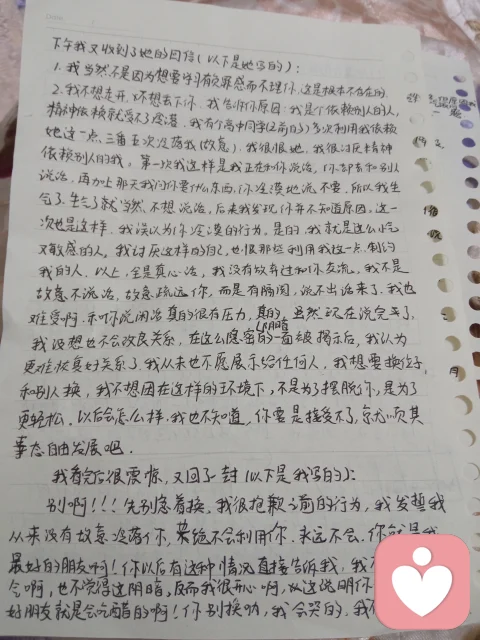 下午我又收到了她的回信(以下是她写的):
1.我当然不是因为想要你有负罪感而不理你,这是根本不存在的.
2.我不想走开,并不想丢下你.我告诉你原因:我是个依赖别人的人,
精神依赖就受不了冷漠.我有个高中同学(之前的)多次利用我依赖
她这一点,三番五次冷落我(故意).我很恨她,我很讨厌精神
依赖别人的我,第一次我这样是我正在和你说话,你却去和别人
说话,再加上那天我问你要什么东西,你冷漠地说不要.所以我生
气了.生气了就当然不想说话,后来我发现你并不知道原因,这一
次也是这样.我误以为你冷漠的行为.是的,我就是这么小气
又敏感的人,我讨厌这样的自己,也恨那些利用我这一点制约
我的人.以上,全是真心话,我没有放弃过和你交流,我不是
故意不说话,故意疏远你,而是有隔阂,说不出话来了,我也
难受啊.和你说闲话真的很有压力,真的.虽然现在说完了,
我没想也不会改良关系,在这么隐密阴暗的一面被揭示后,我认为
更难恢复好关系了.我从来也不愿展示给任何人,我想要换位子,
和别人换,我不想困在这样的环境下,不是为了摆脱你,是为了
更轻松.以后会怎么样,我也不知道,你要是接受不了,就顺其
事态自由发展吧.
我看完后很震惊,又回了一封(以下是我写的):
别啊!!!先别急着换,我很抱歉之前的行为,我发誓我
从来没有故意冷落你,绝不会利用你,永远不会.你就是我
最好的朋友啊!你以后有这种情况直接告诉我,我
会啊,也不觉得这阴暗,反而我很开心啊,这说明你
好朋友就是会吃醋的啊!你别换叻,我会哭的,我